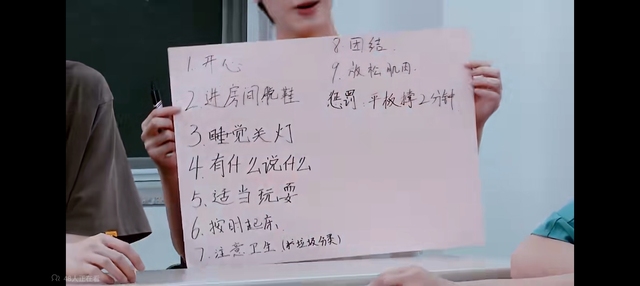 1.开心
2.进房间脱鞋
3.睡觉关灯
4.有什么说什么
5.适当玩耍
6.按时起床.
7.注意卫生(扔垃圾分类)
8团结.
9.放松肌肉.
惩罚:平板撑2分钟
48人正在看